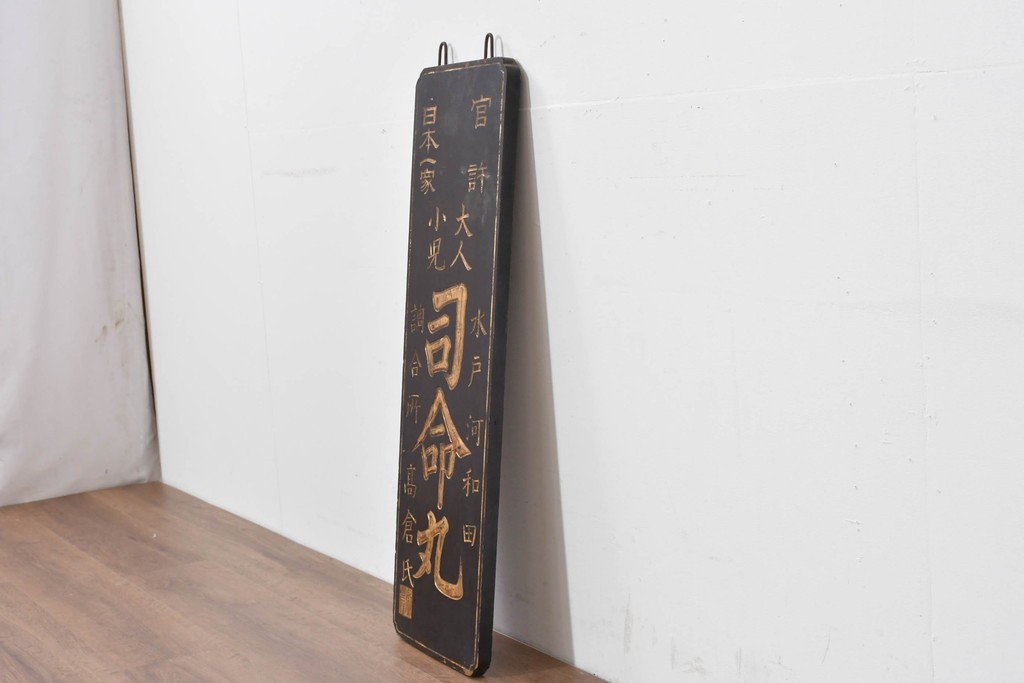 官許
日本一家
大人
小児
水戸河和田
司命丸
調合所 高倉氏